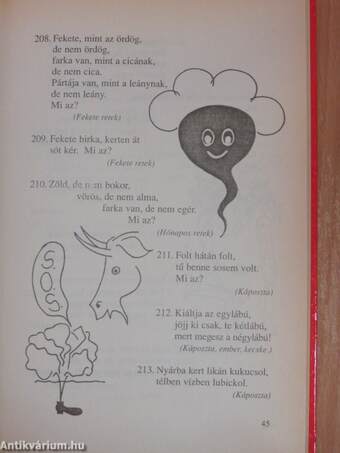 208. Fekete, mint az ördög,
de nem ördög,
farka van, mint a cicának,
de nem cica.
Pártája van, mint a leánynak,
de nem leány.
Mi az?
(Fekete retek)
209. Fekete birka, kerten át
sót kér. Mi az?
(Fekete retek)
210. Zöld, de nem bokor,
vörös, de nem alma,
farka van, de nem egér.
Mi az?
(Hónapos retek)
211. Folt hátán folt,
tű benne sosem volt.
Mi az?
(Káposzta)
S.O.S
212. Kiáltja az egylábú,
jöjj ki csak, te kétlábú,
mert megesz a négylábú!
(Káposzta, ember, kecske.)
213. Nyárba kert fikán kukucsol,
télben vízben lubickol.
(Káposzta)
45
Antikvárium.hu